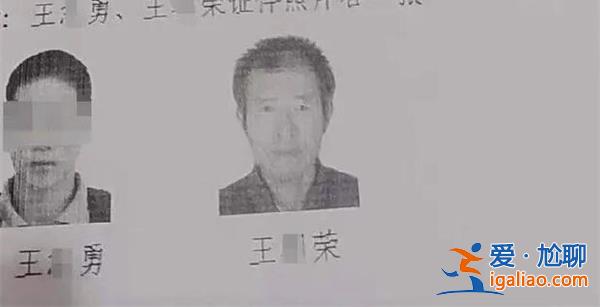 ：王 勇、王 荣证件照片各一张
王 勇
王 荣
爱·尬聊
igaliao.com